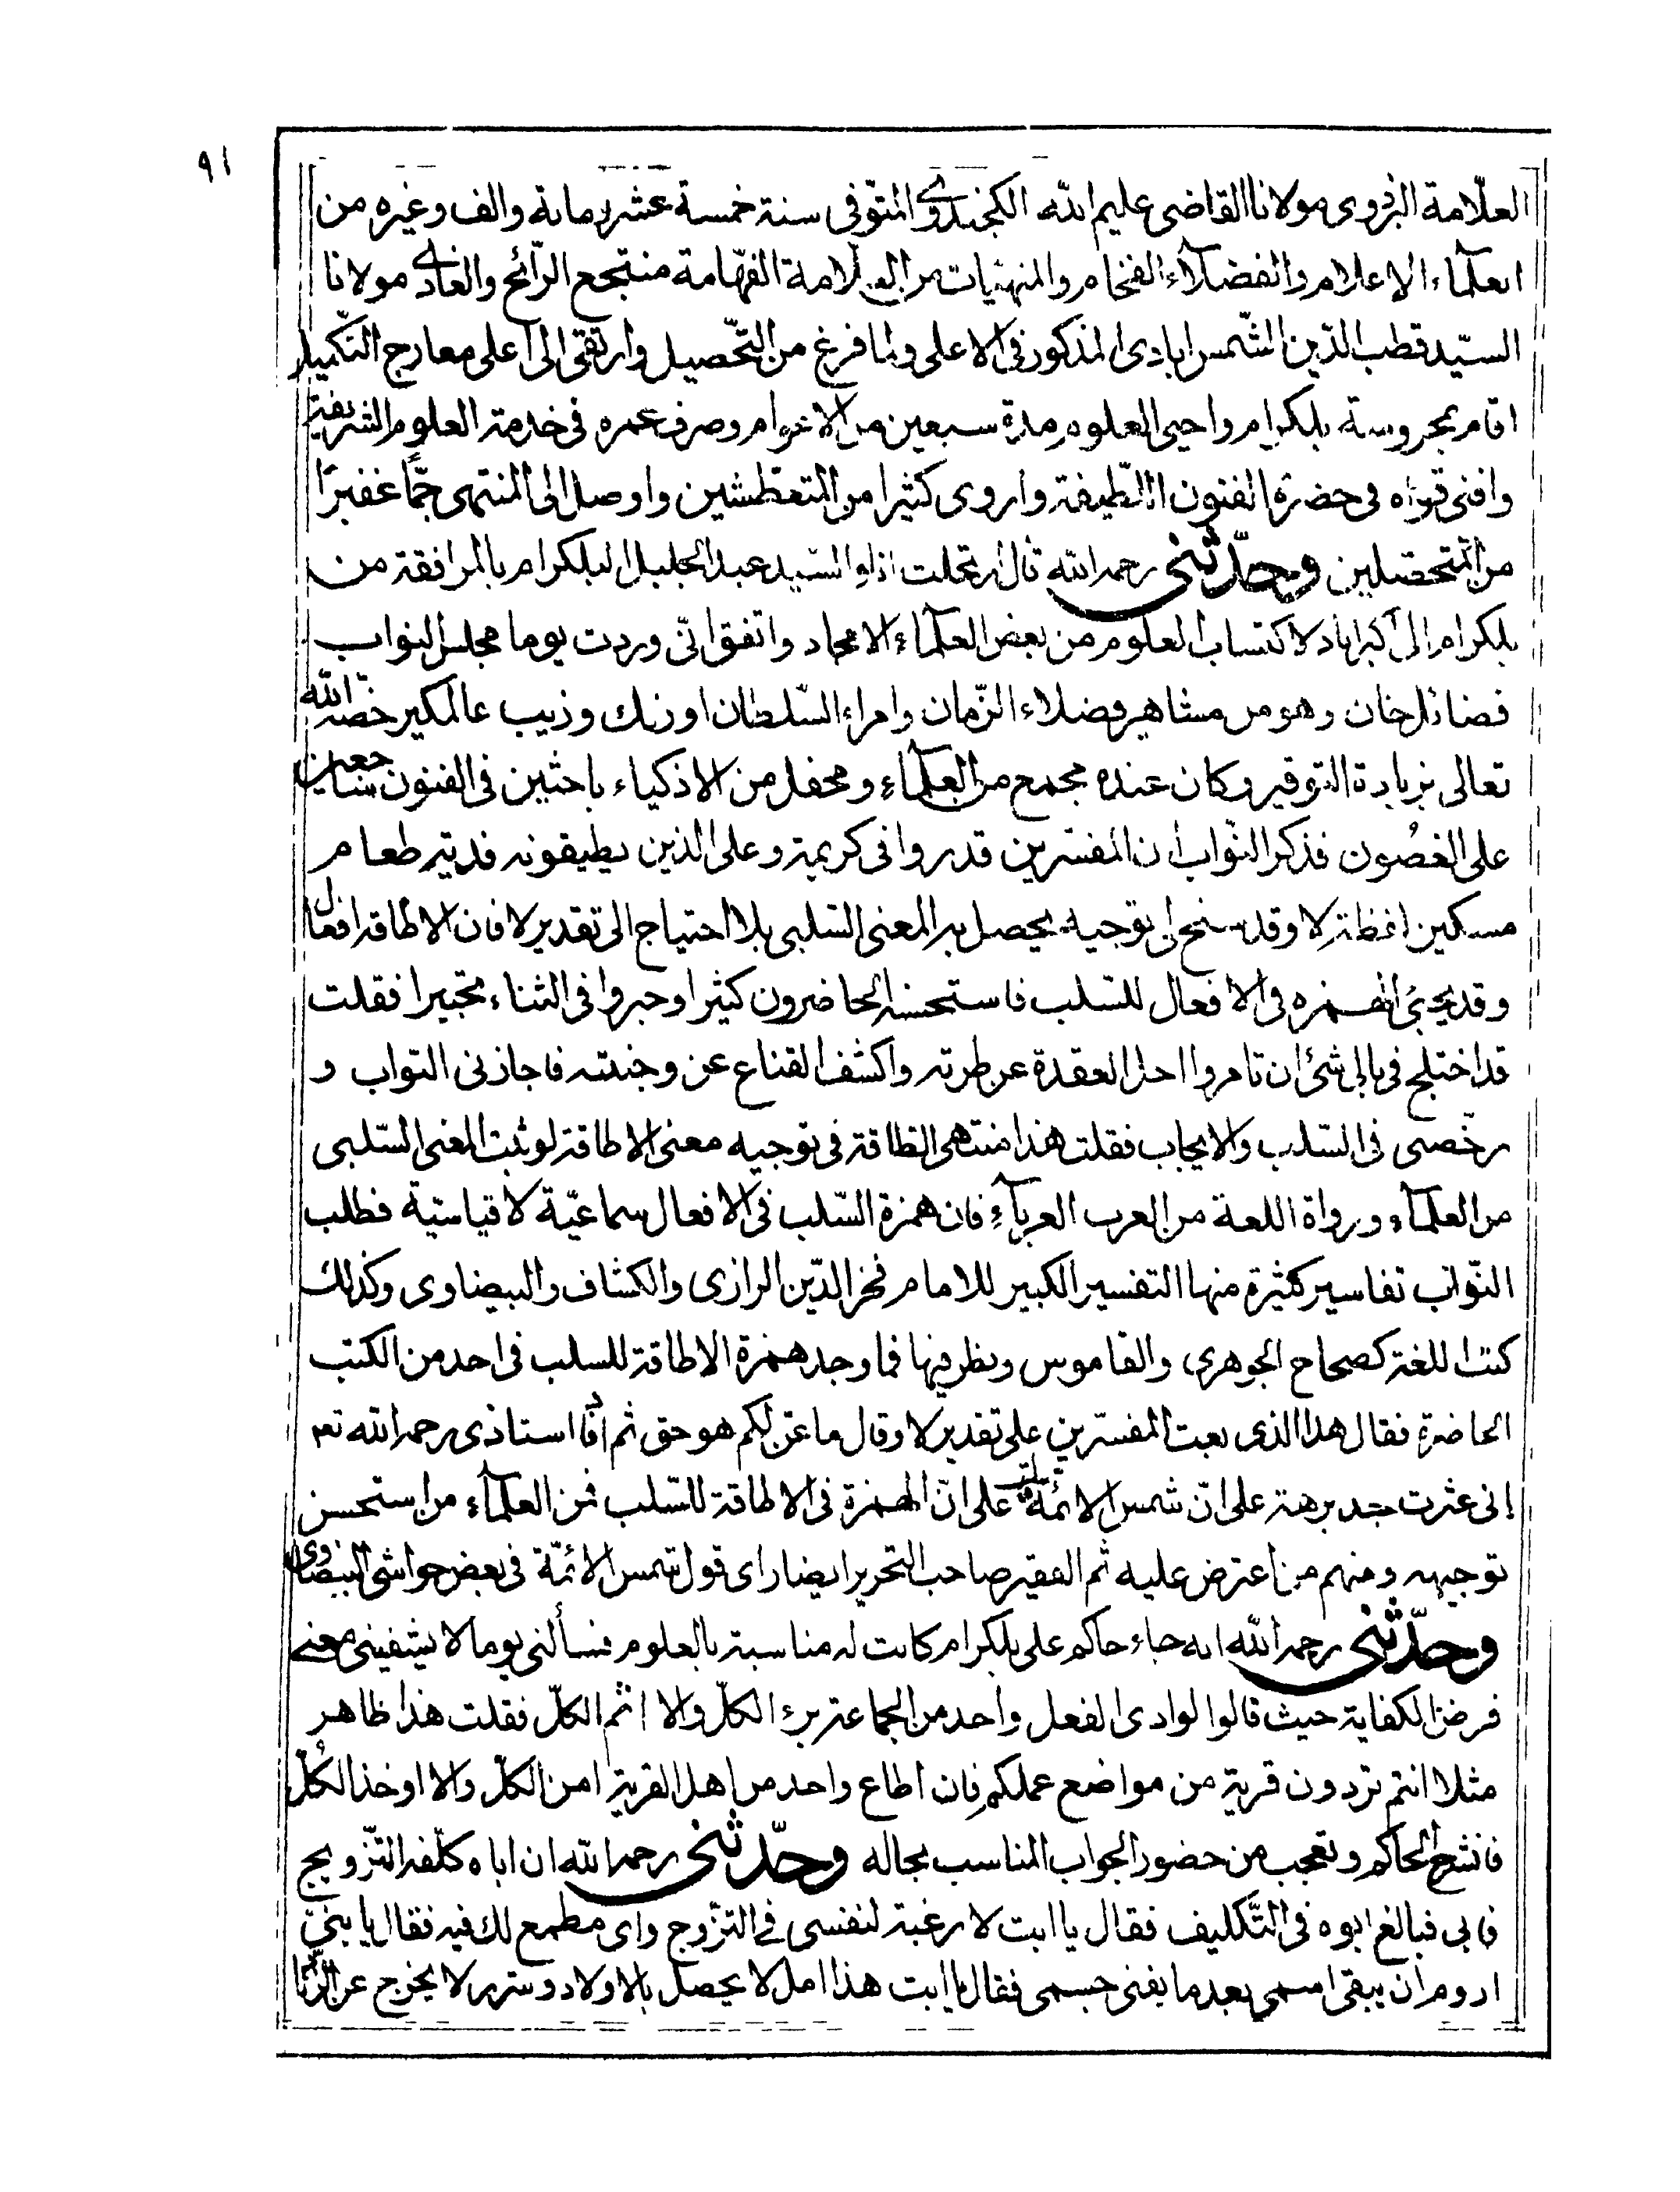 ٩١
العلّامة البزدوى مولانا القاضى عليم الله الكجندوى المتوّفى سنة خمسة عشر ومائة والف وغيره من
العلمآء الاعلام والفضلآء الفخام والمنهيات من العلامة الفهّامة منتجع الرّائح والغادى مولانا
السيّد قطب الدّين الشّمس ابادى المذكور فى الاعلى ولما فرغ من التّحصيل وارتقى الى اعلى معارج التّكميل
اقام بمحروسة بلكرام واحيى العلوم مدة سبعين من الاعوام وصرف عمره فى خدمة العلوم الشريفة
وافنى قواه فى حضرة الفنون اللّطيفة واروى كثيرا من المتعطّشين واوصل الى المنتهى جمًّا غفيرًا
من المتحصّلين وحدّثنى رحمه الله قال ارتحلت انا والسّيد عبد الجليل البلكرام بالمرافقة من
بلكرام الى اكبراباد لاكتساب العلوم من بعض العلمآء الامجاد واتفق انّى وردت يوما مجلس النواب
فضائل خان وهو من مشاهير فضلاء الزّمان وامراء السّلطان اورنك وزيب عالمكير خصّه الله
تعالى بزيادة التوقير وكان عنده مجمع من العلمآء ومحفل من الاذكياء باحثين فى الفنون ساجعين
على الغصُون فذكر النّواب ان المفسّرين قدروا فى كريمة وعلى الذين يطيقونه فدية طعام
مسكين لفظة لا وقد سنح لى توجيه يحصل به المعنى السّلبى بلا احتياج الى تقدير لا فان الاطاقة افعال
وقد يجئ الهمزه فى الافعال للسّلب فاستحسنه الحاضرون كثيرا وحبروا فى الثناء تحبيرا فقلت
قد اختلج فى بالى شئ ان تامروا احل العقدة عن طرته واكشف القناع عن وجنته فاجازنى النواب و
رخّصى فى السّلب والايجاب فقلت هذا منتهى الطاقة فى توجيه معنى الاطاقة لو ثبت المعنى السّلبى
من العلمآء ورواة اللغة من العرب العربآء فان همزة السّلب فى الافعال سماعيّة لا قياسيّة فطلب
النّواب تفاسير كثيرة منها التفسير الكبير للامام فخر الدّين الرازى والكشاف والبيضاوى وكذلك
كتب اللغة كصحاح الجوهرى والقاموس ونظر فيها فما وجد همزة الاطاقة للسلب فى احد من الكتب
الحاضرة فقال هذا الذى بعث المفسّرين على تقدير لا وقال ما عنّ لكم هو حق ثم افاد استاذى رحمه الله تعم
إنى عثرت بعد برهة على انّ شمس الائمّة على انّ الهمزة فى الاطاقة للسّلب فمن العلمآء من استحسن
توجيهه ومنهم من اعترض عليه ثم الفقير صاحب التحرير ايضا راى قول شمس الائمّة فى بعض حواشى البيضاوى
وحدّثنى رحمه الله انه جاء حاكم على بلكرام كانت له مناسبة بالعلوم فسألنى يوما لا يشفينى معنى
فرض الكفاية حيث قالوا لو ادى الفعل واحد من الجماعة برء الكلّ والا اثم الكلّ فقلت هذا ظاهر
مثلا انتم تردون قرية من مواضع عملكم فان اطاع واحد من اهل القرية امن الكلّ والا اوخذ الكُلّ
فانشرح الحاكم وتعجب من حضور الجواب المناسب بحاله وحدّثنى رحمه الله ان اباه كلّفه التّزويج
فابى فبالغ ابوه فى التّكليف فقال يا ابت لا رغبة لنفسى فى التزوّج واى مطمع لك فيه فقال يا بنىّ
اروم ان يبقى اسمى بعد ما يفنى جسمى فقال يا ابت هذا امل لا يحصل بالاولاد وستر لا يخرج عن الزّناد